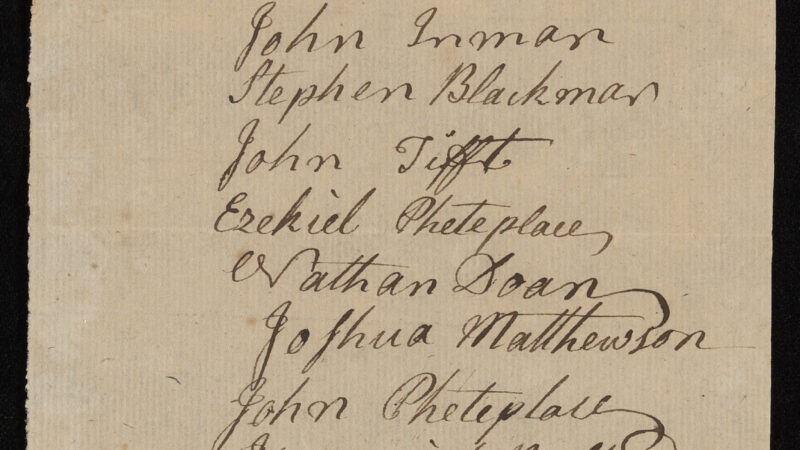 John Inman
Stephen Blackmar
John Tifft
Ezekiel Pheteplace
Nathan Doan
Joshua Matthewson
John Pheteplace